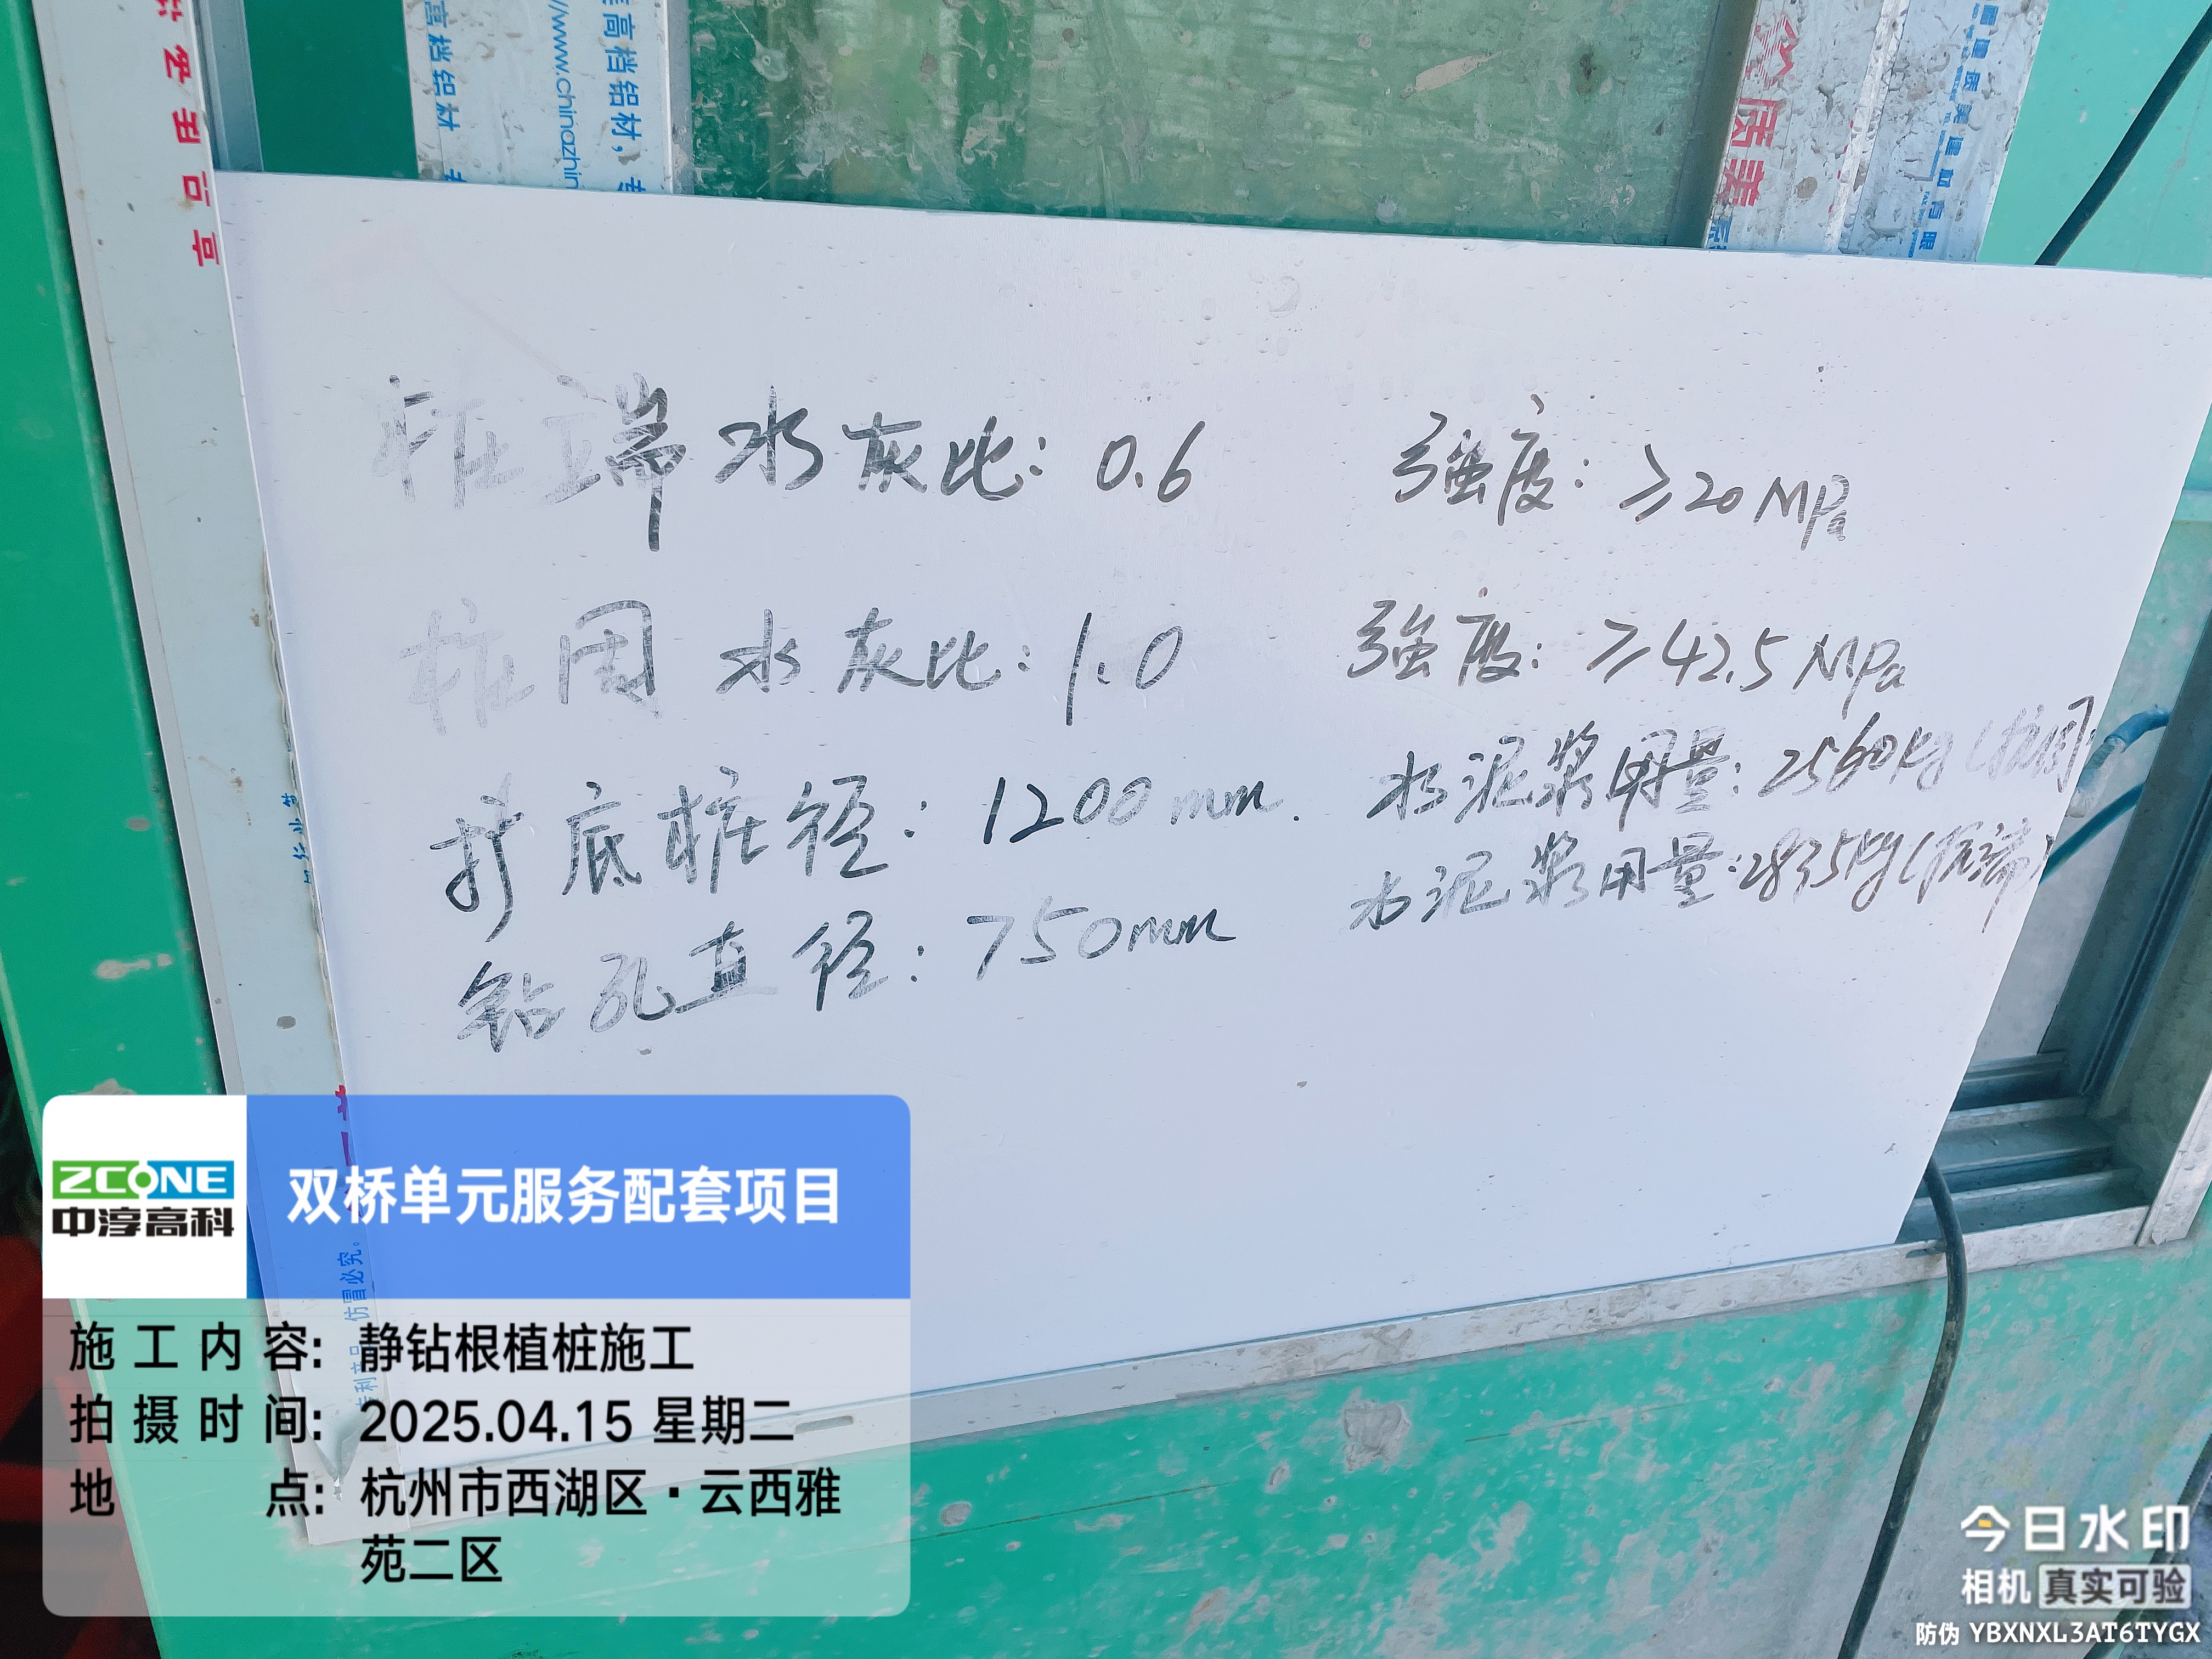 高档铝材
www.chinazhin
高档铝材，
质美
桩端水灰比：0.6 强度：≥20MPa
桩周水灰比：1.0 强度：≥42.5MPa
扩底桩径：1200mm. 水泥浆用量：2560kg（桩周）
钻孔直径：750mm 水泥浆用量：2835kg（桩端）
仿冒必究。
ZCONE
中淳高科
双桥单元服务配套项目
施工内容：静钻根植桩施工
拍摄时间：2025.04.15 星期二
地点：杭州市西湖区·云西雅
苑二区
今日水印
相机 真实可验
防伪 YBXNXL3AT6TYGX